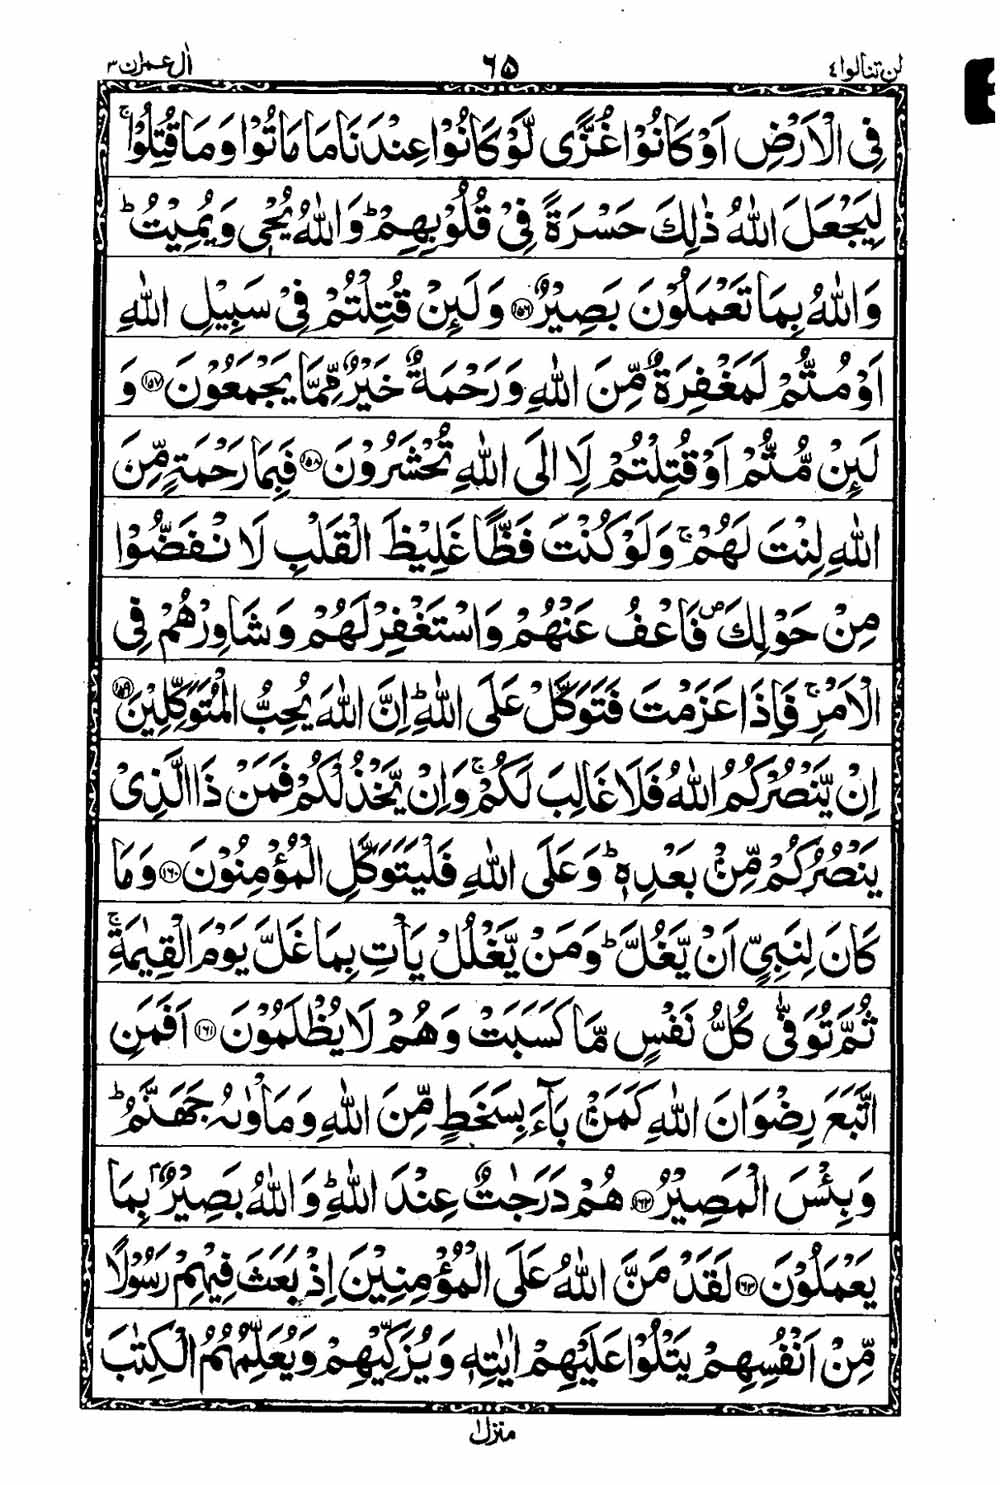 لن تنالوا ٤
٦٥
اٰل عمران ٣
فِى الْاَرْضِ اَوْ كَانُوْا غُزًّى لَّوْ كَانُوْا عِنْدَنَا مَا مَاتُوْا وَمَا قُتِلُوْا ۚ
لِيَجْعَلَ اللّٰهُ ذٰلِكَ حَسْرَةً فِىْ قُلُوْبِهِمْ ؕ وَاللّٰهُ يُحْىٖ وَيُمِيْتُ ؕ
وَاللّٰهُ بِمَا تَعْمَلُوْنَ بَصِيْرٌ ۝١٥٦ وَلَئِنْ قُتِلْتُمْ فِىْ سَبِيْلِ اللّٰهِ
اَوْ مُتُّمْ لَمَغْفِرَةٌ مِّنَ اللّٰهِ وَرَحْمَةٌ خَيْرٌ مِّمَّا يَجْمَعُوْنَ ۝١٥٧ وَ
لَئِنْ مُّتُّمْ اَوْ قُتِلْتُمْ لَا۟اِلَى اللّٰهِ تُحْشَرُوْنَ ۝١٥٨ فَبِمَا رَحْمَةٍ مِّنَ
اللّٰهِ لِنْتَ لَهُمْ ۚ وَلَوْ كُنْتَ فَظًّا غَلِيْظَ الْقَلْبِ لَا نْفَضُّوْا
مِنْ حَوْلِكَ ۖ فَاعْفُ عَنْهُمْ وَاسْتَغْفِرْ لَهُمْ وَشَاوِرْهُمْ فِى
الْاَمْرِ ۚ فَاِذَا عَزَمْتَ فَتَوَكَّلْ عَلَى اللّٰهِ ؕ اِنَّ اللّٰهَ يُحِبُّ الْمُتَوَكِّلِيْنَ ۝١٥٩
اِنْ يَّنْصُرْكُمُ اللّٰهُ فَلَا غَالِبَ لَكُمْ ۚ وَاِنْ يَّخْذُلْكُمْ فَمَنْ ذَا الَّذِىْ
يَنْصُرُكُمْ مِّنْۢ بَعْدِهٖ ؕ وَعَلَى اللّٰهِ فَلْيَتَوَكَّلِ الْمُؤْمِنُوْنَ ۝١٦٠ وَمَا
كَانَ لِنَبِىٍّ اَنْ يَّغُلَّ ؕ وَمَنْ يَّغْلُلْ يَاْتِ بِمَا غَلَّ يَوْمَ الْقِيٰمَةِ ۚ
ثُمَّ تُوَفّٰى كُلُّ نَفْسٍ مَّا كَسَبَتْ وَهُمْ لَا يُظْلَمُوْنَ ۝١٦١ اَفَمَنِ
اتَّبَعَ رِضْوَانَ اللّٰهِ كَمَنْۢ بَآءَ بِسَخَطٍ مِّنَ اللّٰهِ وَمَاْوٰىهُ جَهَنَّمُ ؕ
وَبِئْسَ الْمَصِيْرُ ۝١٦٢ هُمْ دَرَجٰتٌ عِنْدَ اللّٰهِ ؕ وَاللّٰهُ بَصِيْرٌۢ بِمَا
يَعْمَلُوْنَ ۝١٦٣ لَقَدْ مَنَّ اللّٰهُ عَلَى الْمُؤْمِنِيْنَ اِذْ بَعَثَ فِيْهِمْ رَسُوْلًا
مِّنْ اَنْفُسِهِمْ يَتْلُوْا عَلَيْهِمْ اٰيٰتِهٖ وَيُزَكِّيْهِمْ وَيُعَلِّمُهُمُ الْكِتٰبَ
منزل ١